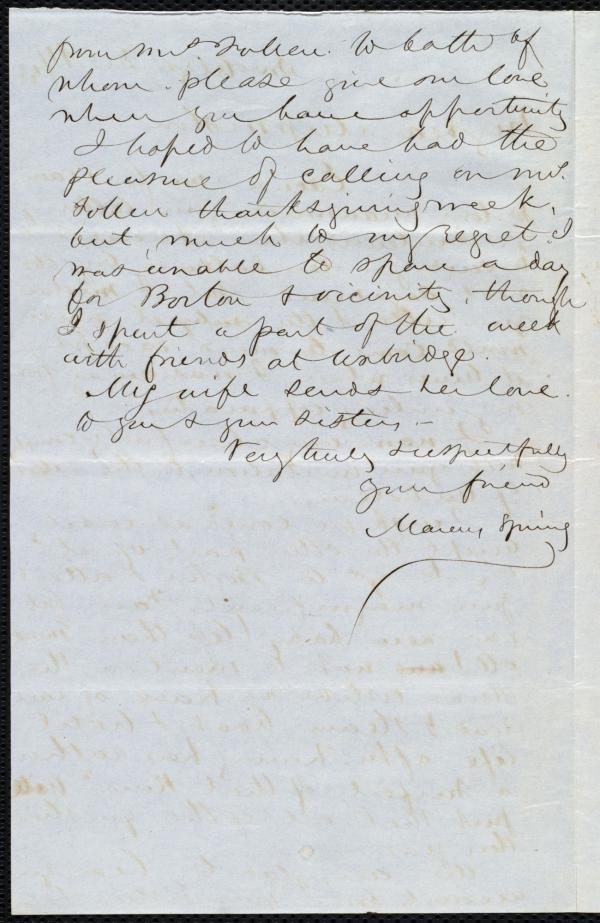 from Mrs Follen. to both of
whom. please give our love
when you have opportunity
I hoped to have had the
pleasure of calling on Mrs.
Follen thanksgiving week,
but much to my regret I
was unable to spare a day
for Boston & vicinity, though
I spent a part of the week
with friends at Uxbridge.
My wife sends her love.
to you & your sisters. –
Very truly & respectfully
your friend
Marcus Spring